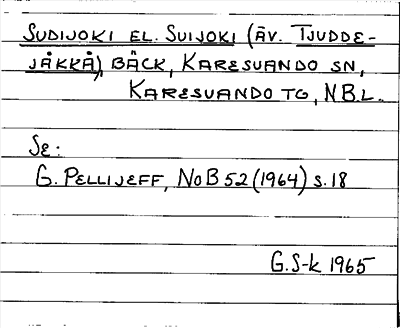 SUDIJOKI EL. SUIJOKI (ÄV. TJUDDE-
JÅKKÅ), BÄCK, KARESUANDO SN,
KARESUANDO TG, N.B.L.
Se:
G. PELLIJEFF, NoB 52 (1964) s. 18
G.S-k 1965